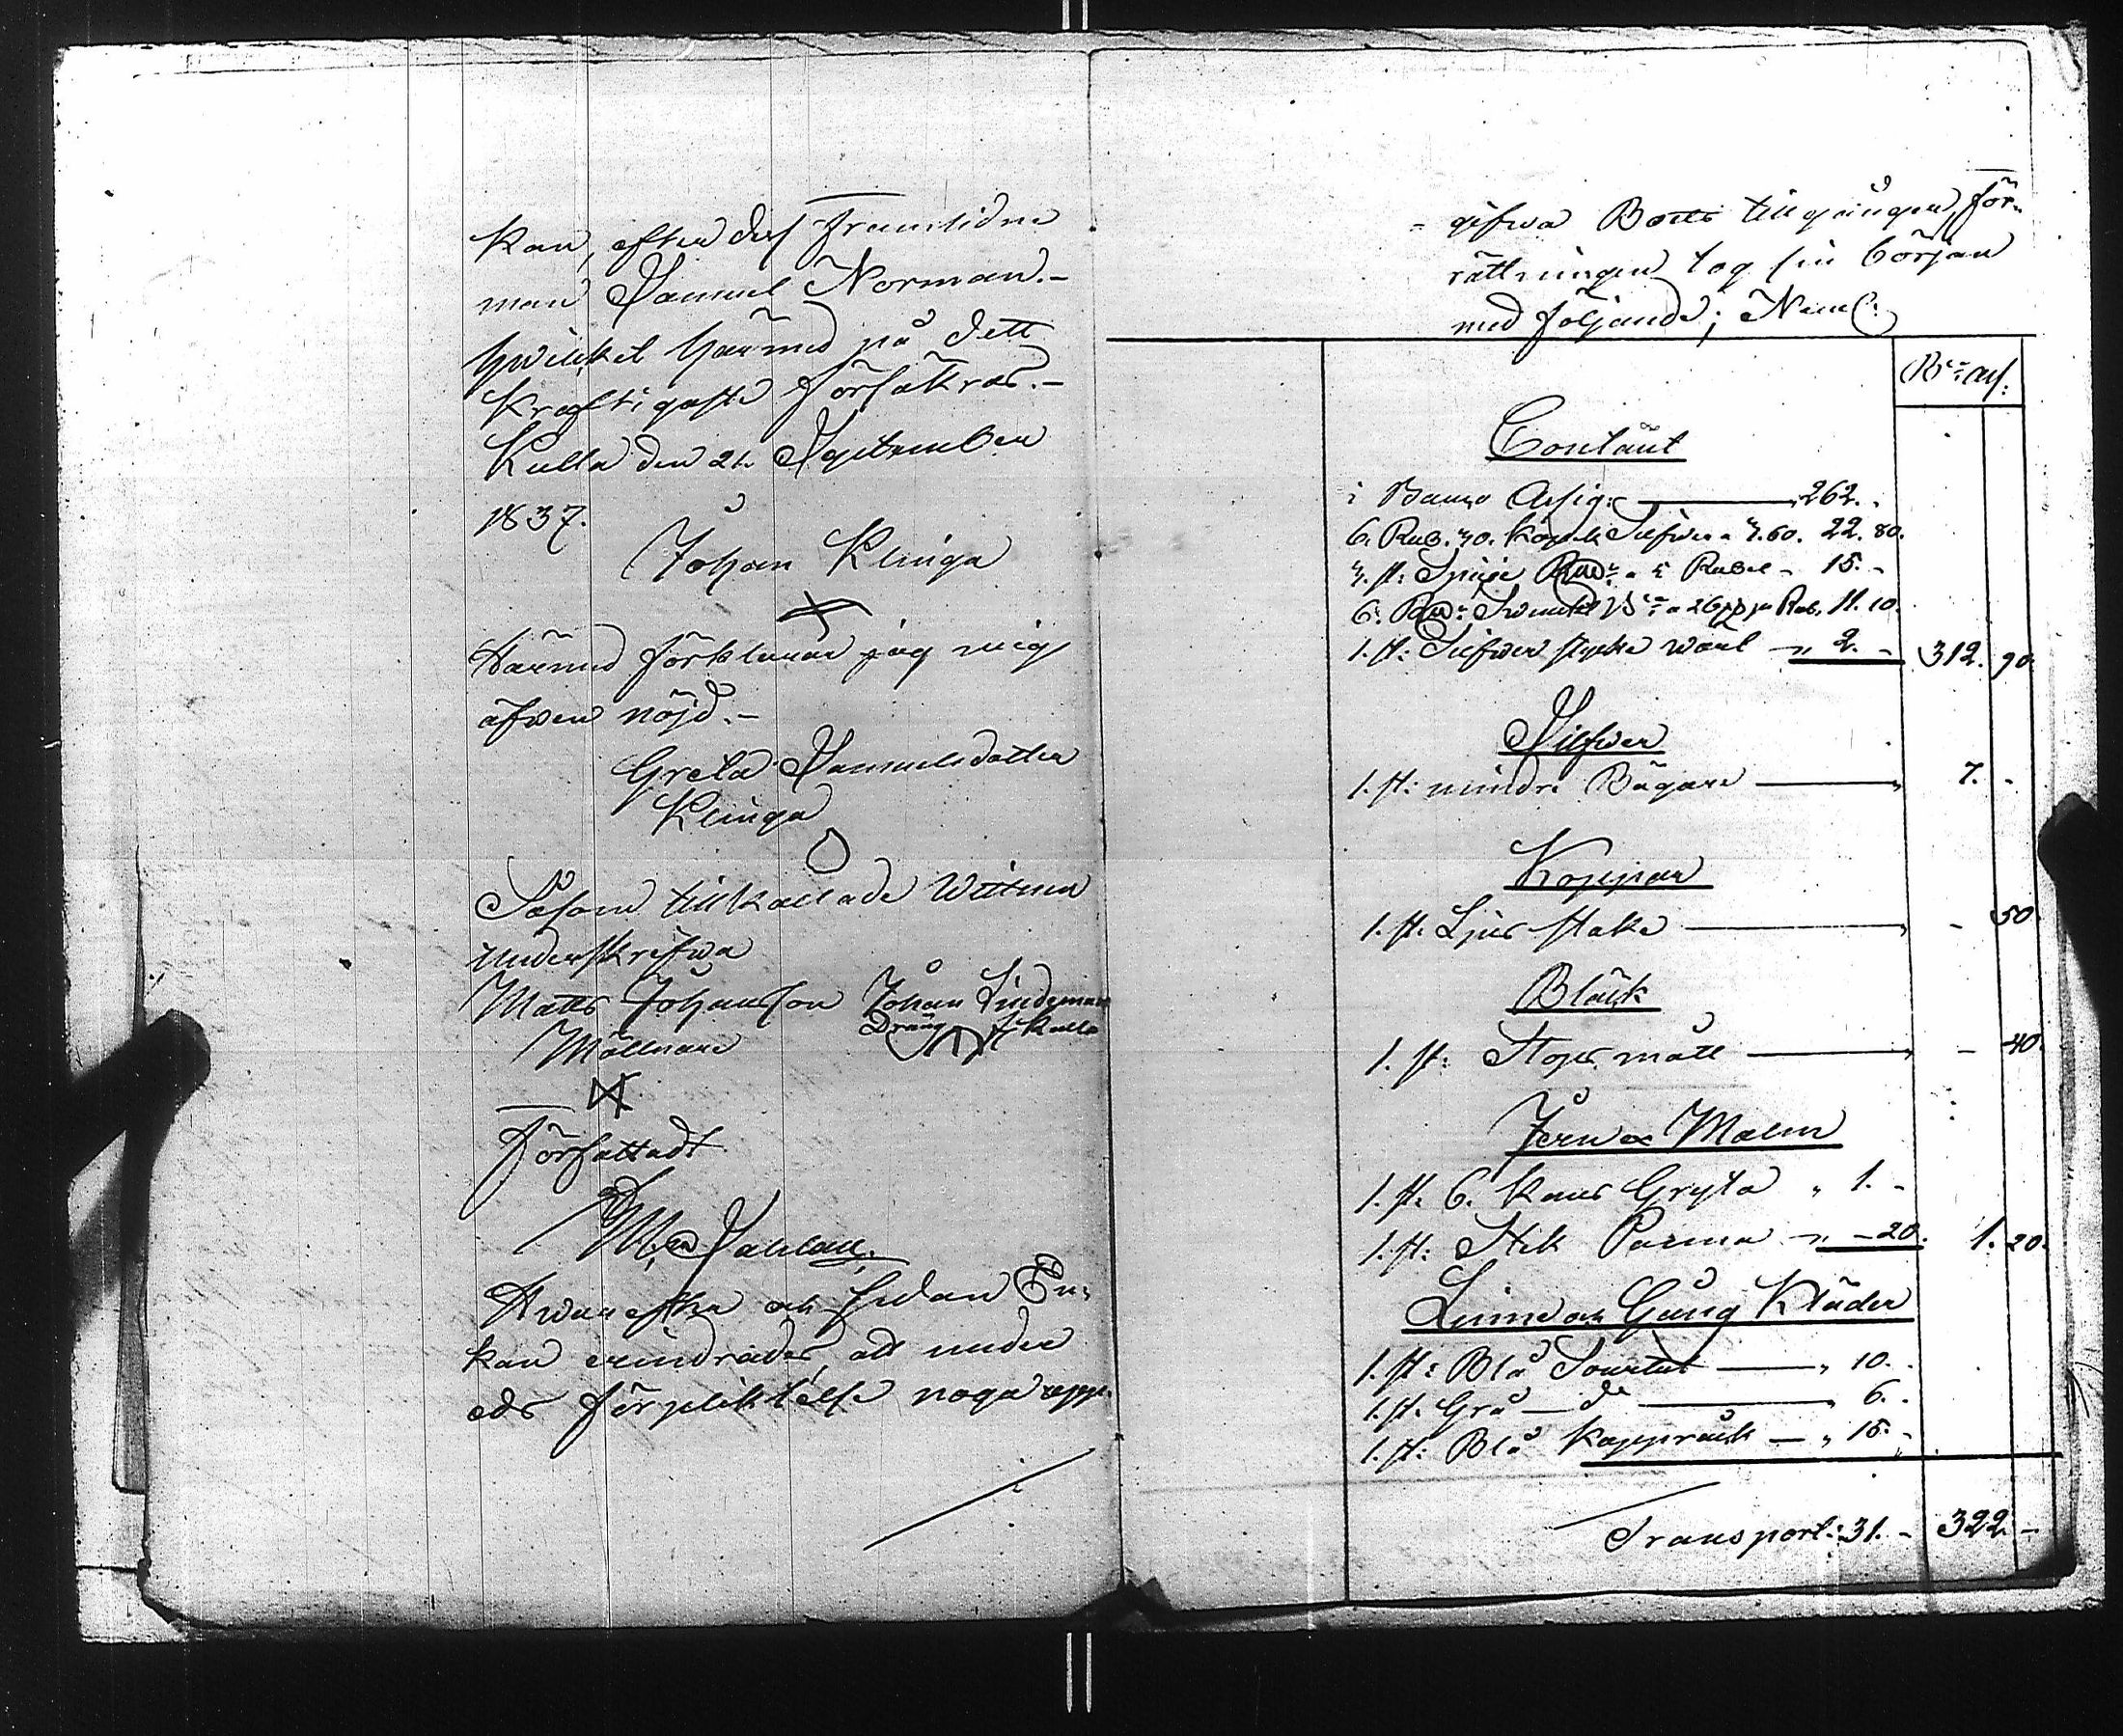 Kan, efter dess Framlidne
man Samuel Norman.-
hwilket härmed på dett
kraftigaste försäkras.-
Kulla den 21. September
1837.
Johan Klinga
Härmed förklarar jag mig
äfwen nöjd.-
Greta Samuelsdotter
Klinga
Såsom tillkallade Wittnen
underskrifwa
Matts Johansson Johan Lindeman
Möllnare Dräng Kulla
Författadt
Hwarefter och sedan En-
kan erindrades, att under
eds förpliktelse noga upp-
= gifwa Boets tillgångar, för-
rättningen tog sin början
med följande; Neml:
Rr: ass:
Contant
i Banco Assig: 262. -
6. Rub. 40. Kopek Silfwer a 3.60. 22. 80.
Rubel - 15. -
Rub. 11. 10.
1. st: Silfwer stycke wärt - " 2. - 312. 90.
Silfwer
1. st: mindre Bägare 7. -
Koppar
1. st. Ljus stake - 50.
Bläck
1. st: Stops mått - 40.
Jern o Malm
1. st. 6. Kans Gryta " 1. -
1. st: Stek Panna " - 20. 1. 20.
Linne och Gång Kläder
1. st: Blå Sourtut " 10. -
1. st. Grå - do " 6. -
1. st: Blå Kappråck - " 15. -
Transport: 31. - 322. -